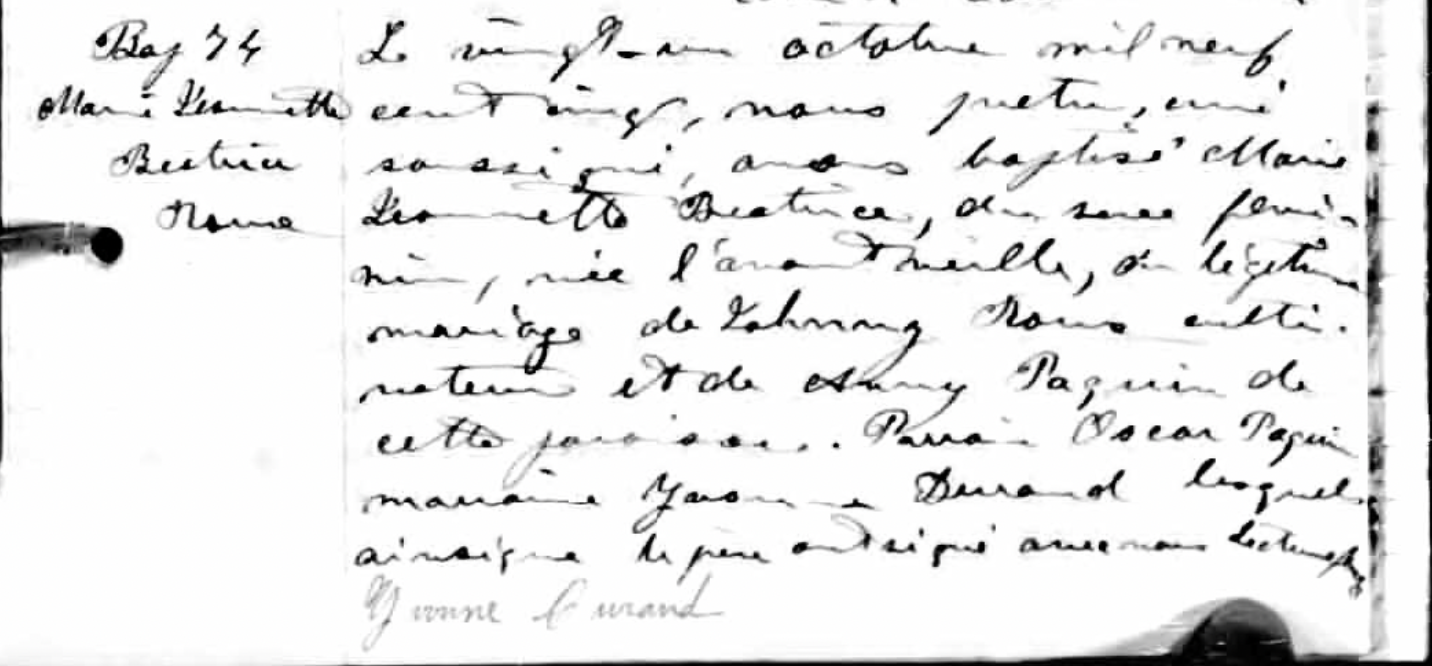 Bap 74
Marie Jeannette
Beatrice
Le vingt-un octobre mil neuf
cent vingt, nous pretre, curé
soussigné, avons baptisé Marie
Jeannette Beatrice, du sexe femi-
nin, née l'avant veille, du légitime
mariage de Johnny culti-
vateur et de Anny Paquin de
cette paroisse. Parrain Oscar Paquin
marraine Yvonne Durand lesquels
ainsi que le père ont signé avec nous Lecture
Yvonne Durand